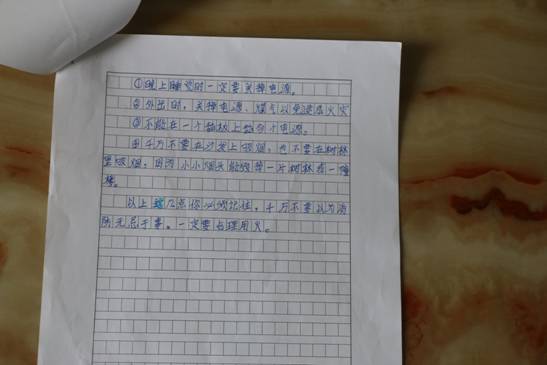 ①晚上睡觉时一定要关掉电源。
②外出时，关掉电源、煤气以免造成火灾
③不能在一个插板上插多个电源。
④千万不要在沙发上吸烟，也不要在树林
里吸烟，因为小小烟头能毁掉一片树林或一幢
楼。
以上这几点你必须记住，千万不要以为消
防无忌于事。一定要合理用火。